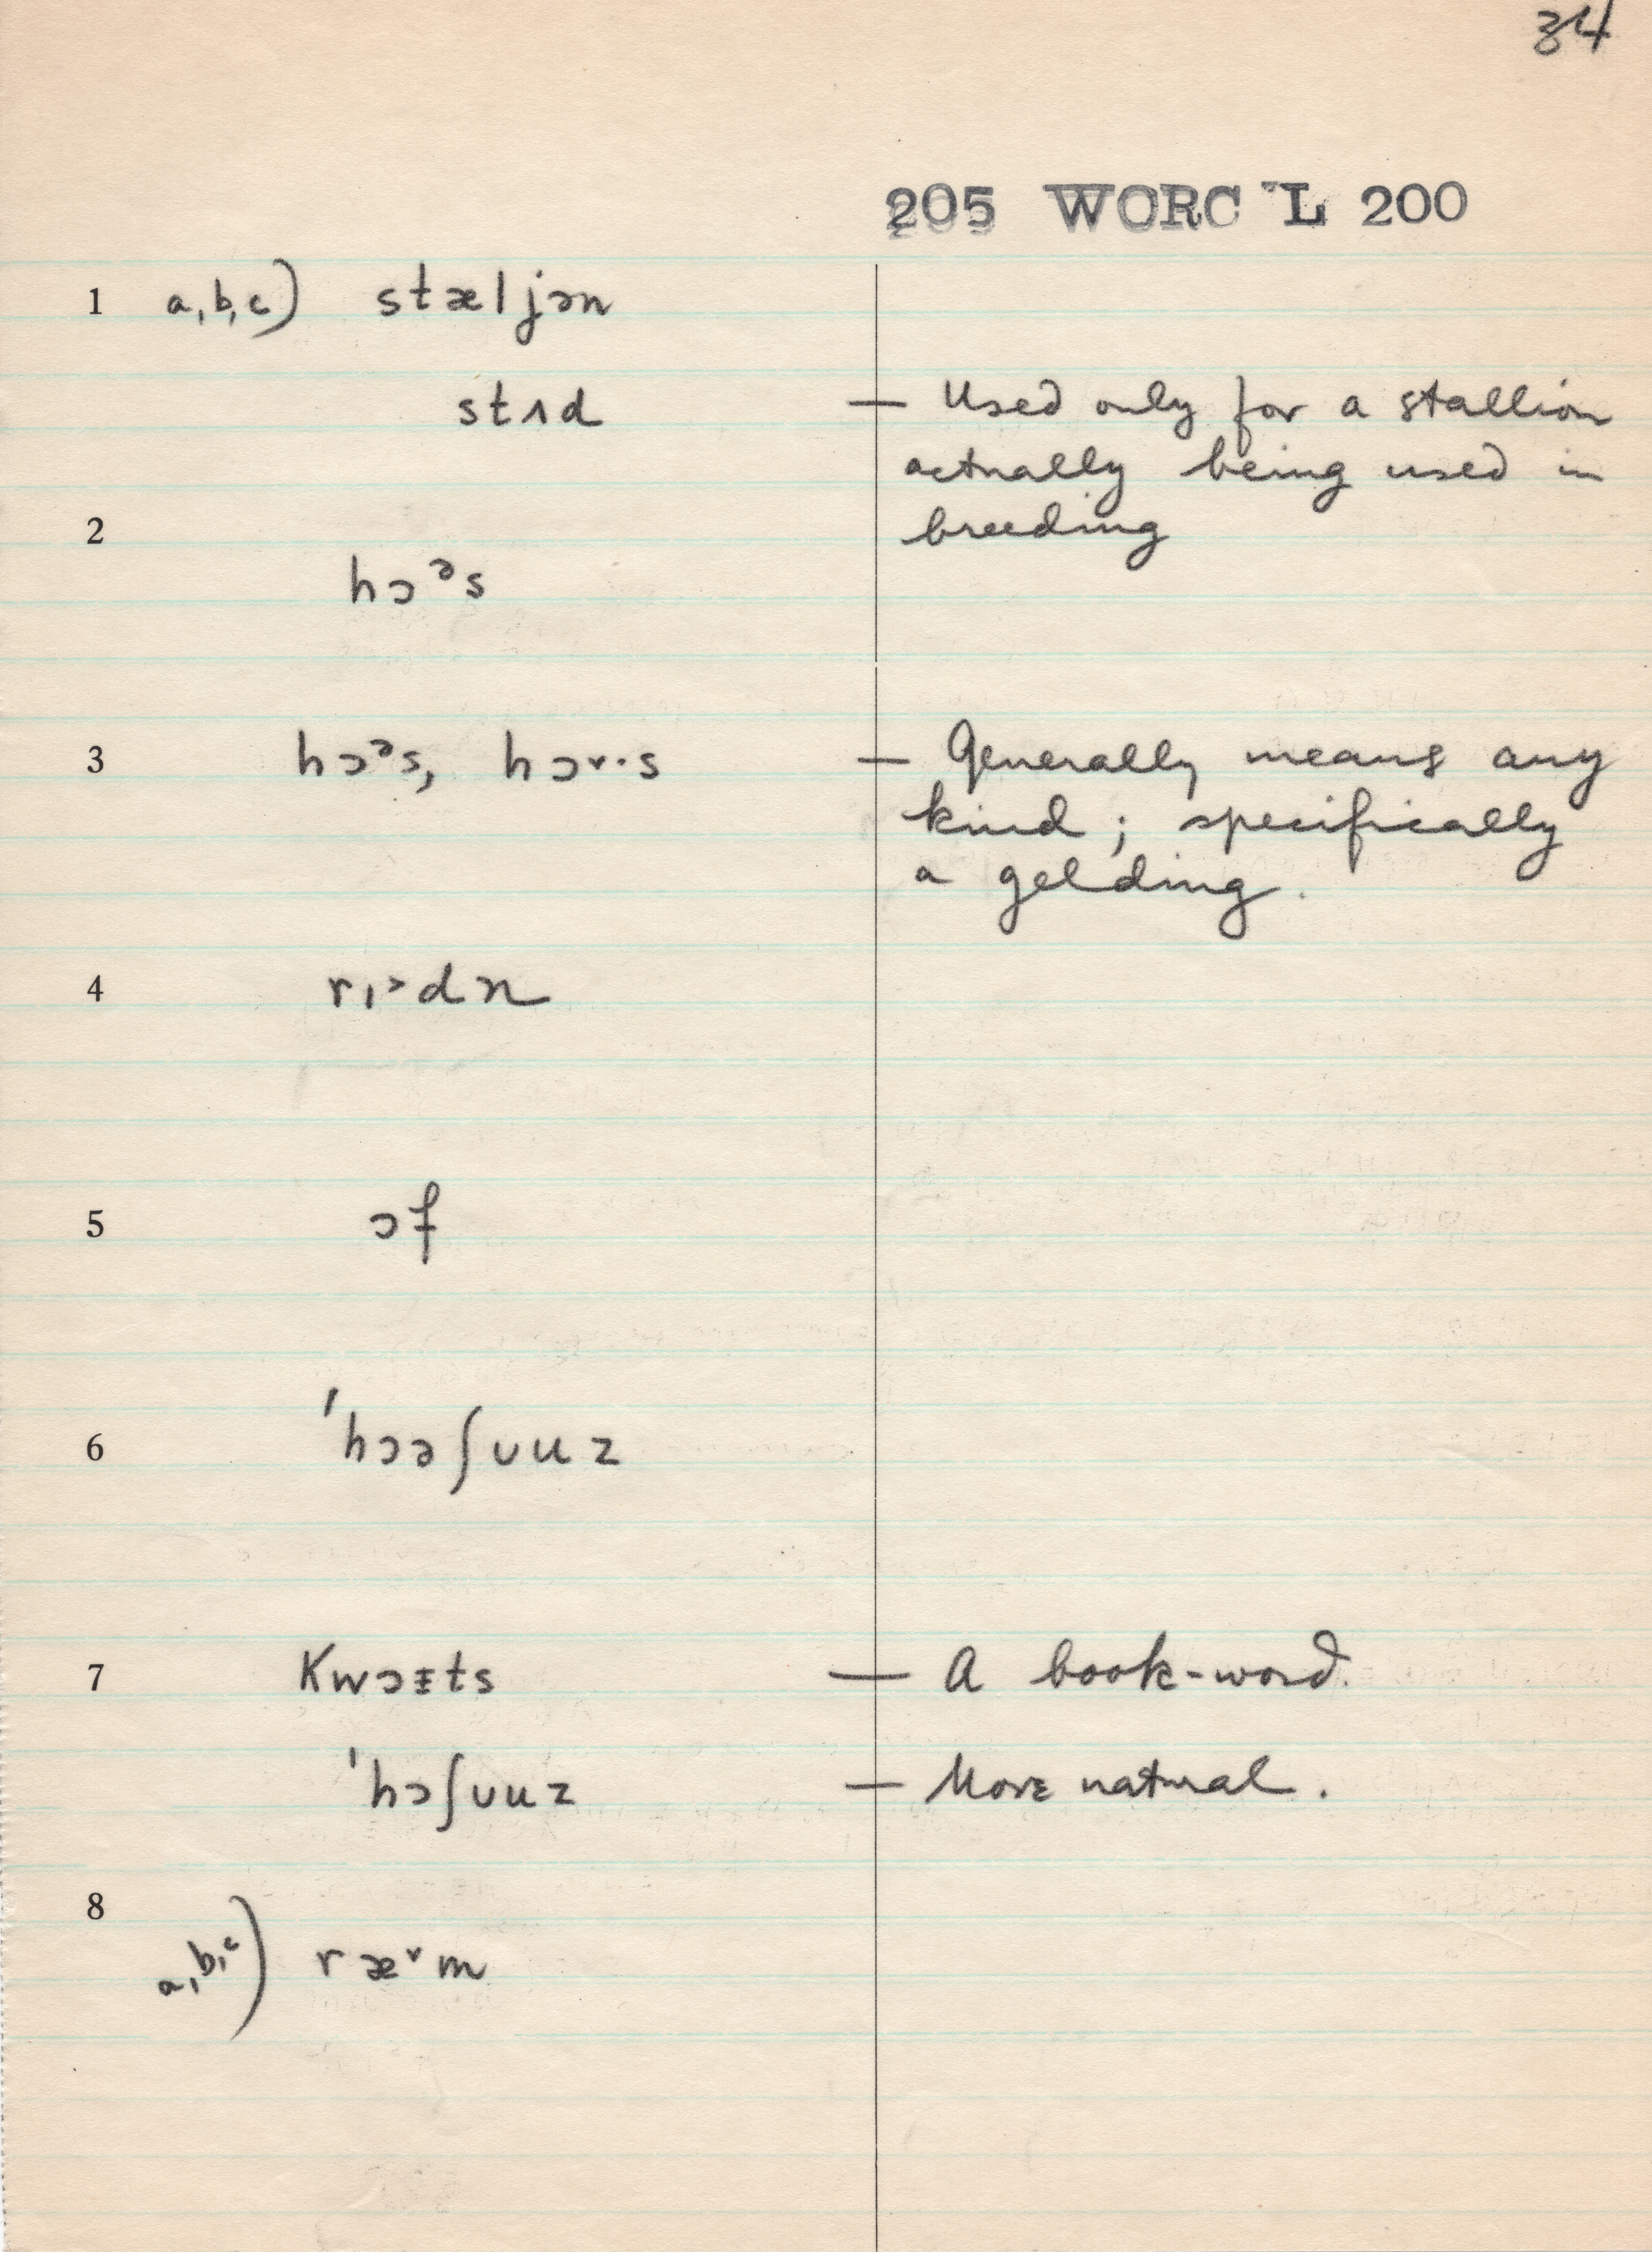 34
205 WORC L 200
1 a, b, c) stæljən
stʌd — Used only for a stallion
actually being used in
2 breeding
hɔᵊs
3 hɔᵊs, hɔ˅·s — Generally means any
kind; specifically
a gelding.
4 rɪ˃dn
5 ɔf
6 ˈhɔəʃʊuz
7 Kwɔɪts — A book-word.
ˈhɔʃʊuz — More natural.
8
a, b, c) ræ˅m